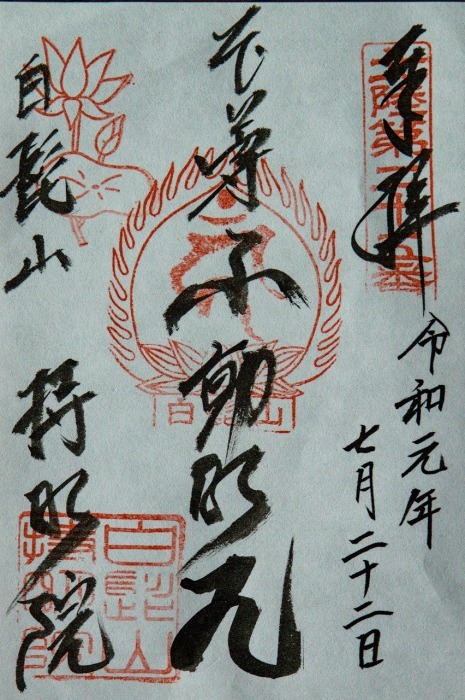 奉拝
令和元年
七月二十二日
本尊不動明王
白髭山
持明院
白髭山
白髭山
持明院